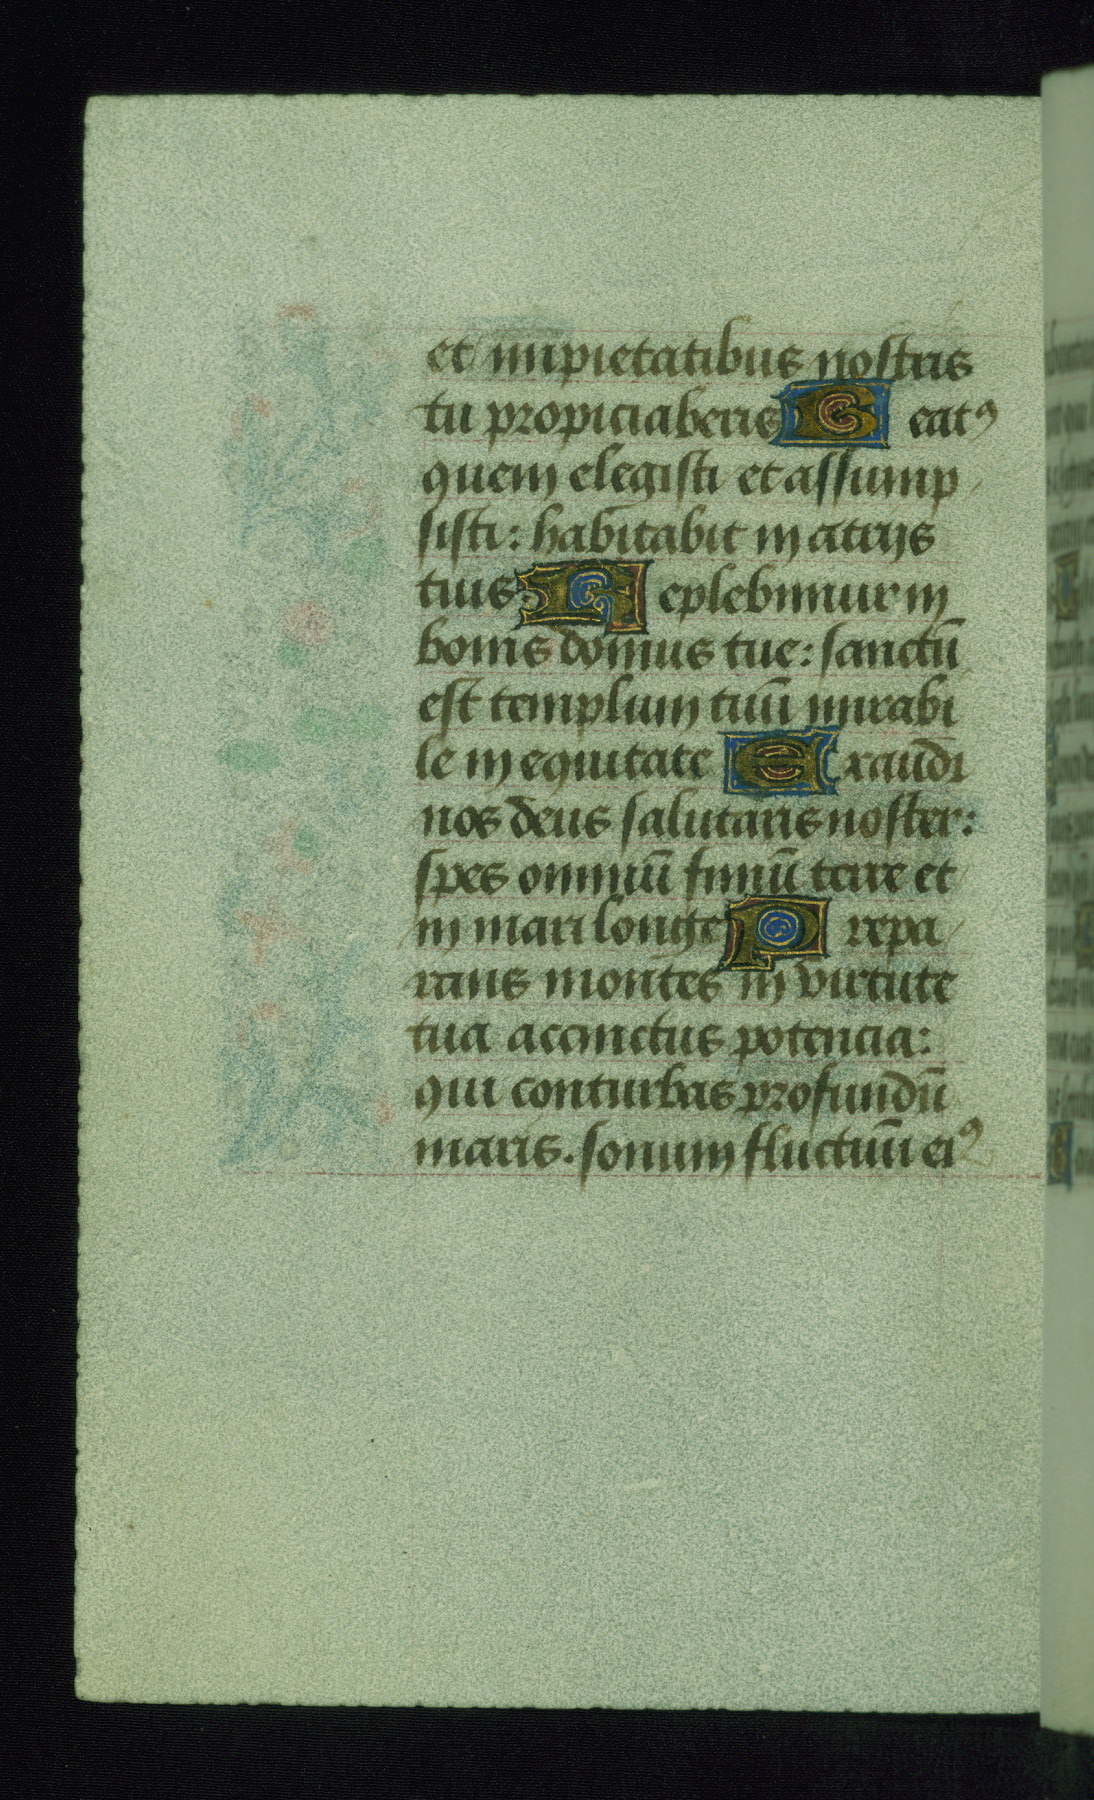 et impietatibus nostris
tu propiciaberis Beatꝰ
quem elegisti et assump
sisti: habitabit in atrijs
tuis: Replebimur in
bonis domus tue: sanctū
est templum tuū mirabi
le in equitate Exaudi
nos deus salutaris noster:
spes omniū finiū terre et
in mari longe Prepa
rans montes in virtute
tua accinctus potencia:
qui conturbas profundū
maris. sonum fluctuū eiꝰ